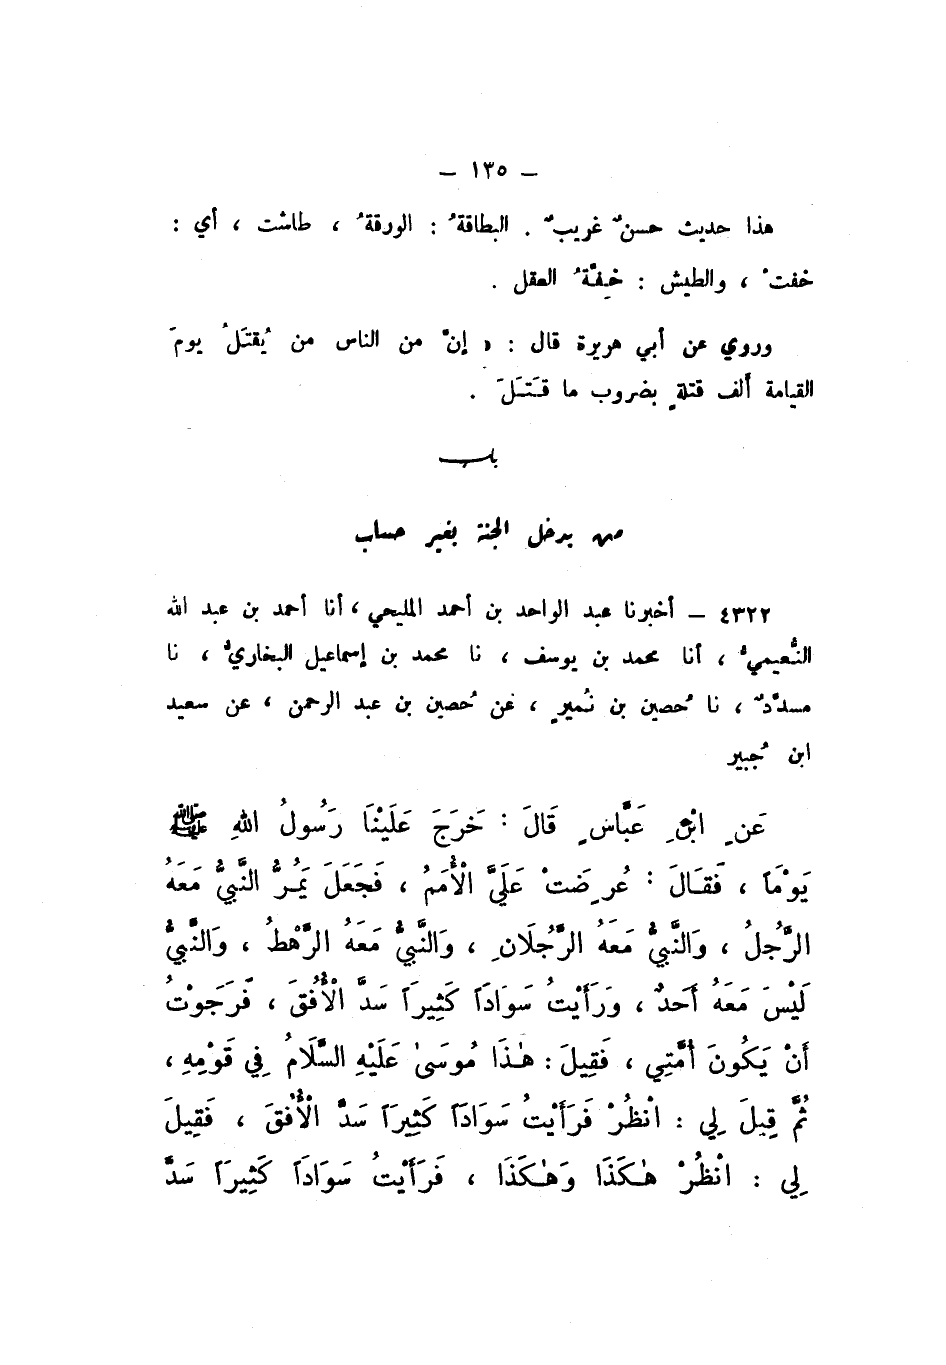 – ١٣٥ –
هذا حديث حسنٌ غريبٌ . البطاقةُ : الورقةُ ، طاشت ، أي :
خفتْ ، والطيش : خِفَّةُ العقل .
وروي عن أبي هريرة قال : « إنْ من الناس من يُقتَلُ يومَ
القيامة ألف قتلةٍ بضروب ما قَتَلَ .
باب
من يدخل الجنة بغير حساب
٤٣٢٢ – أخبرنا عبد الواحد بن أحمد المليحي ، أنا أحمد بن عبد الله
النُّعيميُّ ، أنا محمد بن يوسف ، نا محمد بن إسماعيل البخاريُّ ، نا
مسدَّدٌ ، نا حُصين بن نُميرٍ ، عن حُصين بن عبد الرحمن ، عن سعيد
ابن جُبير
عَنِ ابْنِ عَبَّاسٍ قَالَ : خَرَجَ عَلَيْنَا رَسُولُ اللهِ ﷺ
يَوْمَاً ، فَقَالَ : عُرِضَتْ عَلَيَّ الْأُمَمُ ، فَجَعَلَ يَمُرُّ النَّبِيُّ مَعَهُ
الرَّجُلُ ، وَالنَّبِيُّ مَعَهُ الرَّجُلَانِ ، وَالنَّبِيُّ مَعَهُ الرَّهْطُ ، وَالنَّبِيُّ
لَيْسَ مَعَهُ أَحَدٌ ، وَرَأَيْتُ سَوَادَاً كَثِيرَاً سَدَّ الْأُفُقَ ، فَرَجَوْتُ
أَنْ يَكُونَ أُمَّتِي ، فَقِيلَ : هٰذَا مُوسَىٰ عَلَيْهِ السَّلَامُ فِي قَوْمِهِ ،
ثُمَّ قِيلَ لِي : انْظُرْ فَرَأَيْتُ سَوَادَاً كَثِيرَاً سَدَّ الْأُفُقَ ، فَقِيلَ
لِي : انْظُرْ هٰكَذَا وَهٰكَذَا ، فَرَأَيْتُ سَوَادَاً كَثِيرَاً سَدَّ